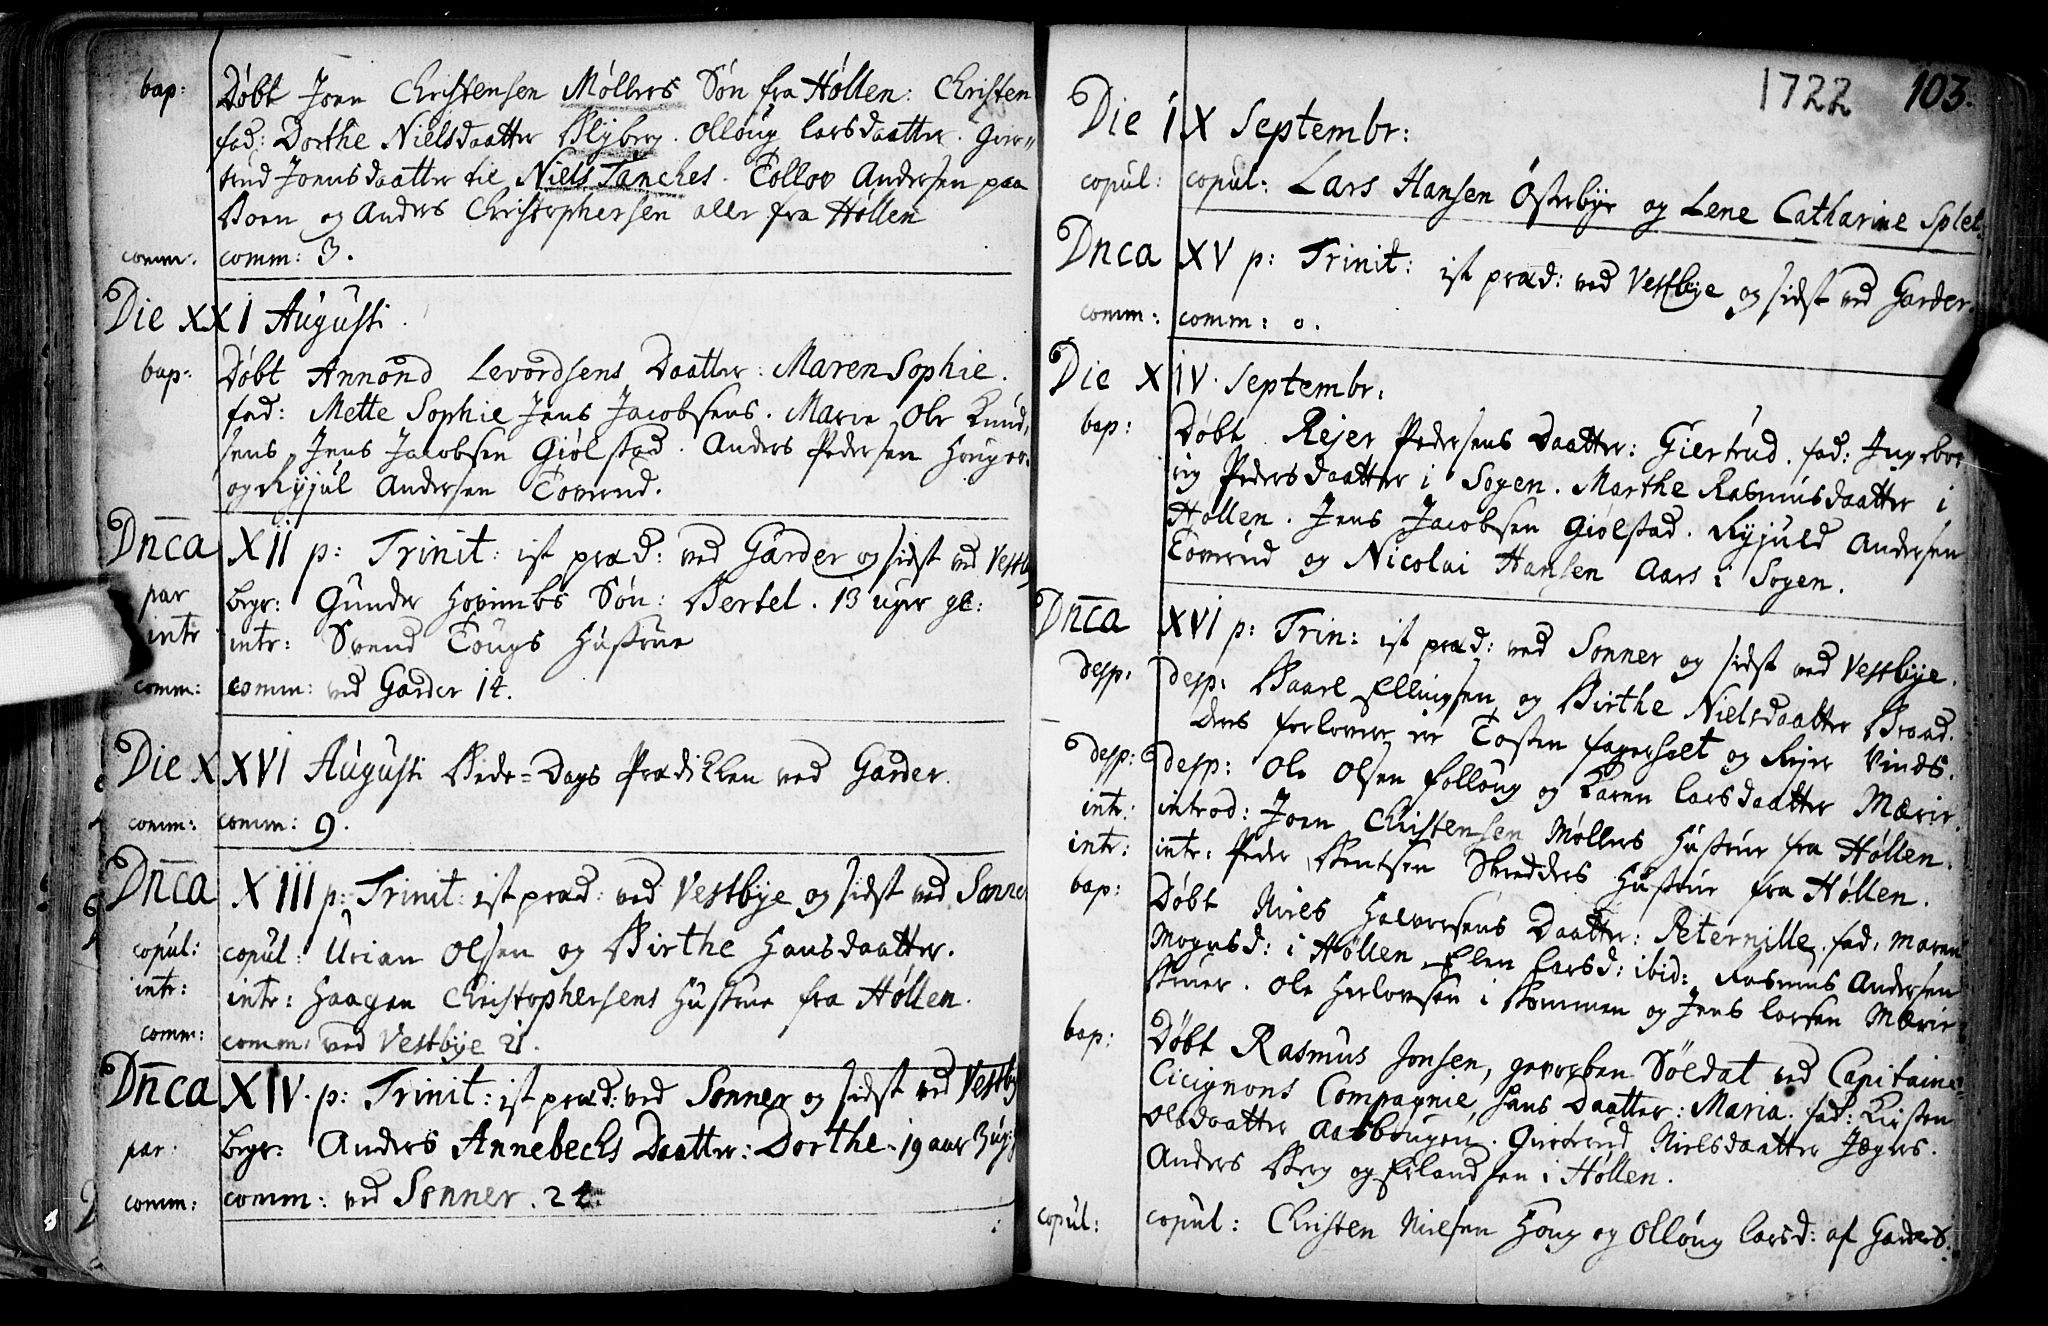 bap: Døbt Joen Christensen Møllers Søn fra Hòllen: Christen
fad: Dorthe Nielsdaatter Blÿberg. Olloug Larsdaatter. Gier=
trud Joensdaatter til Niels Tanches. Tollov Andersen paa
Boen og Anders Christophersen aller fra Hòllen
comm: comm: 3.
Die XXI Augusti.
bap: Døbt Annond Levordsens Daatter: Maren Sophie.
fad: Mette Sophie Jens Jacobsens. Marie Ole Knud,
sens, Jens Jacobsen Giølstad. Anders Pedersen
og Ryjul Andersen Toverud.
Dn̄ca XII p: Trinit: ist præd: ved Garder og sidst ved Vestb
par begr: Gunder Søn: Bertel. 13 uger gl:
intr intr: Svend Tougs Hustrue
comm: comm: ved Garder 14.
Die XXVI Augusti Bede=Dags Prædikken ved Garder.
comm: comm: 9.
Dn̄ca XIII p: Trinit: ist præd: ved Vestbye og sidst ved Sonner
copul: copul: Urian Olsen og Birthe Hansdaatter.
intr: intr: Haagen Christophersens Hustrue fra Hòllen.
comm: comm: ved Vestbye 21.
Dn̄ca XIV. p: Trinit: ist præd: ved Sonner og sidst ved Vestby
par. begr: Anders Annebechs Daatter: Dorthe. 19 aar 3 ug:
comm: comm: ved Sonner. 24.
1722 103.
Die IX Septembr:
copul: copul: Lars Hansen Østerbye og Lene Catharine Splet.
Dnca XV p: Trinit: ist præd: ved Vestbye og sidst ved Garder.
comm: comm: 0.
Die XIV. Septembr:
bap: Døbt Rejer Pedersens Daatter: Giertrud. fad: Ingebor
rig Pedersdaatter i Sogen. Marthe Rasmusdaatter i
Hollen. Jens Jacobsen Giølstad. Ryjuld Andersen
Toverud og Nicolai Hansen Aars i Sogen.
Dn̄ca XVI p: Trin: ist præd: ved Sonner og sidst ved Vestbye.
desp: desp: Baarl Ellingsen og Birthe Nielsdaatter Braad.
Dens forlovere er Tosten fagerholt og Rejer Vinds.
desp: desp: Ole Olsen Folloug og Karen Larsdaatter Mærie.
intr: introd: Joen Christensen Møllers Hustrue fra Hòllen.
intr: intr: Peder Bentsen Skredders Hustrue fra Hòllen.
bap: Døbt Niels Halvorsens Daatter: Peternille. fad: Maren
Mognsd: i Hòllen Ellen Larsd: ibid: Rasmus Andersen
Struer. Ole Herlovsen i Kommen og Jens Larsen Mærie
bap: Døbt Rasmus Jonsen, gevorben Søldat ved Capitaine
Cicignons Compagnie, hans Daatter: Maria. fad: Kirsten
Olsdaatter Aasbougen. Giertrud Nielsdaatter Jægers.
Anders Berg og Erlandsen i Hòllen.
copul: copul: Christen Nielsen Houg og Olloug Larsd: af Garders.